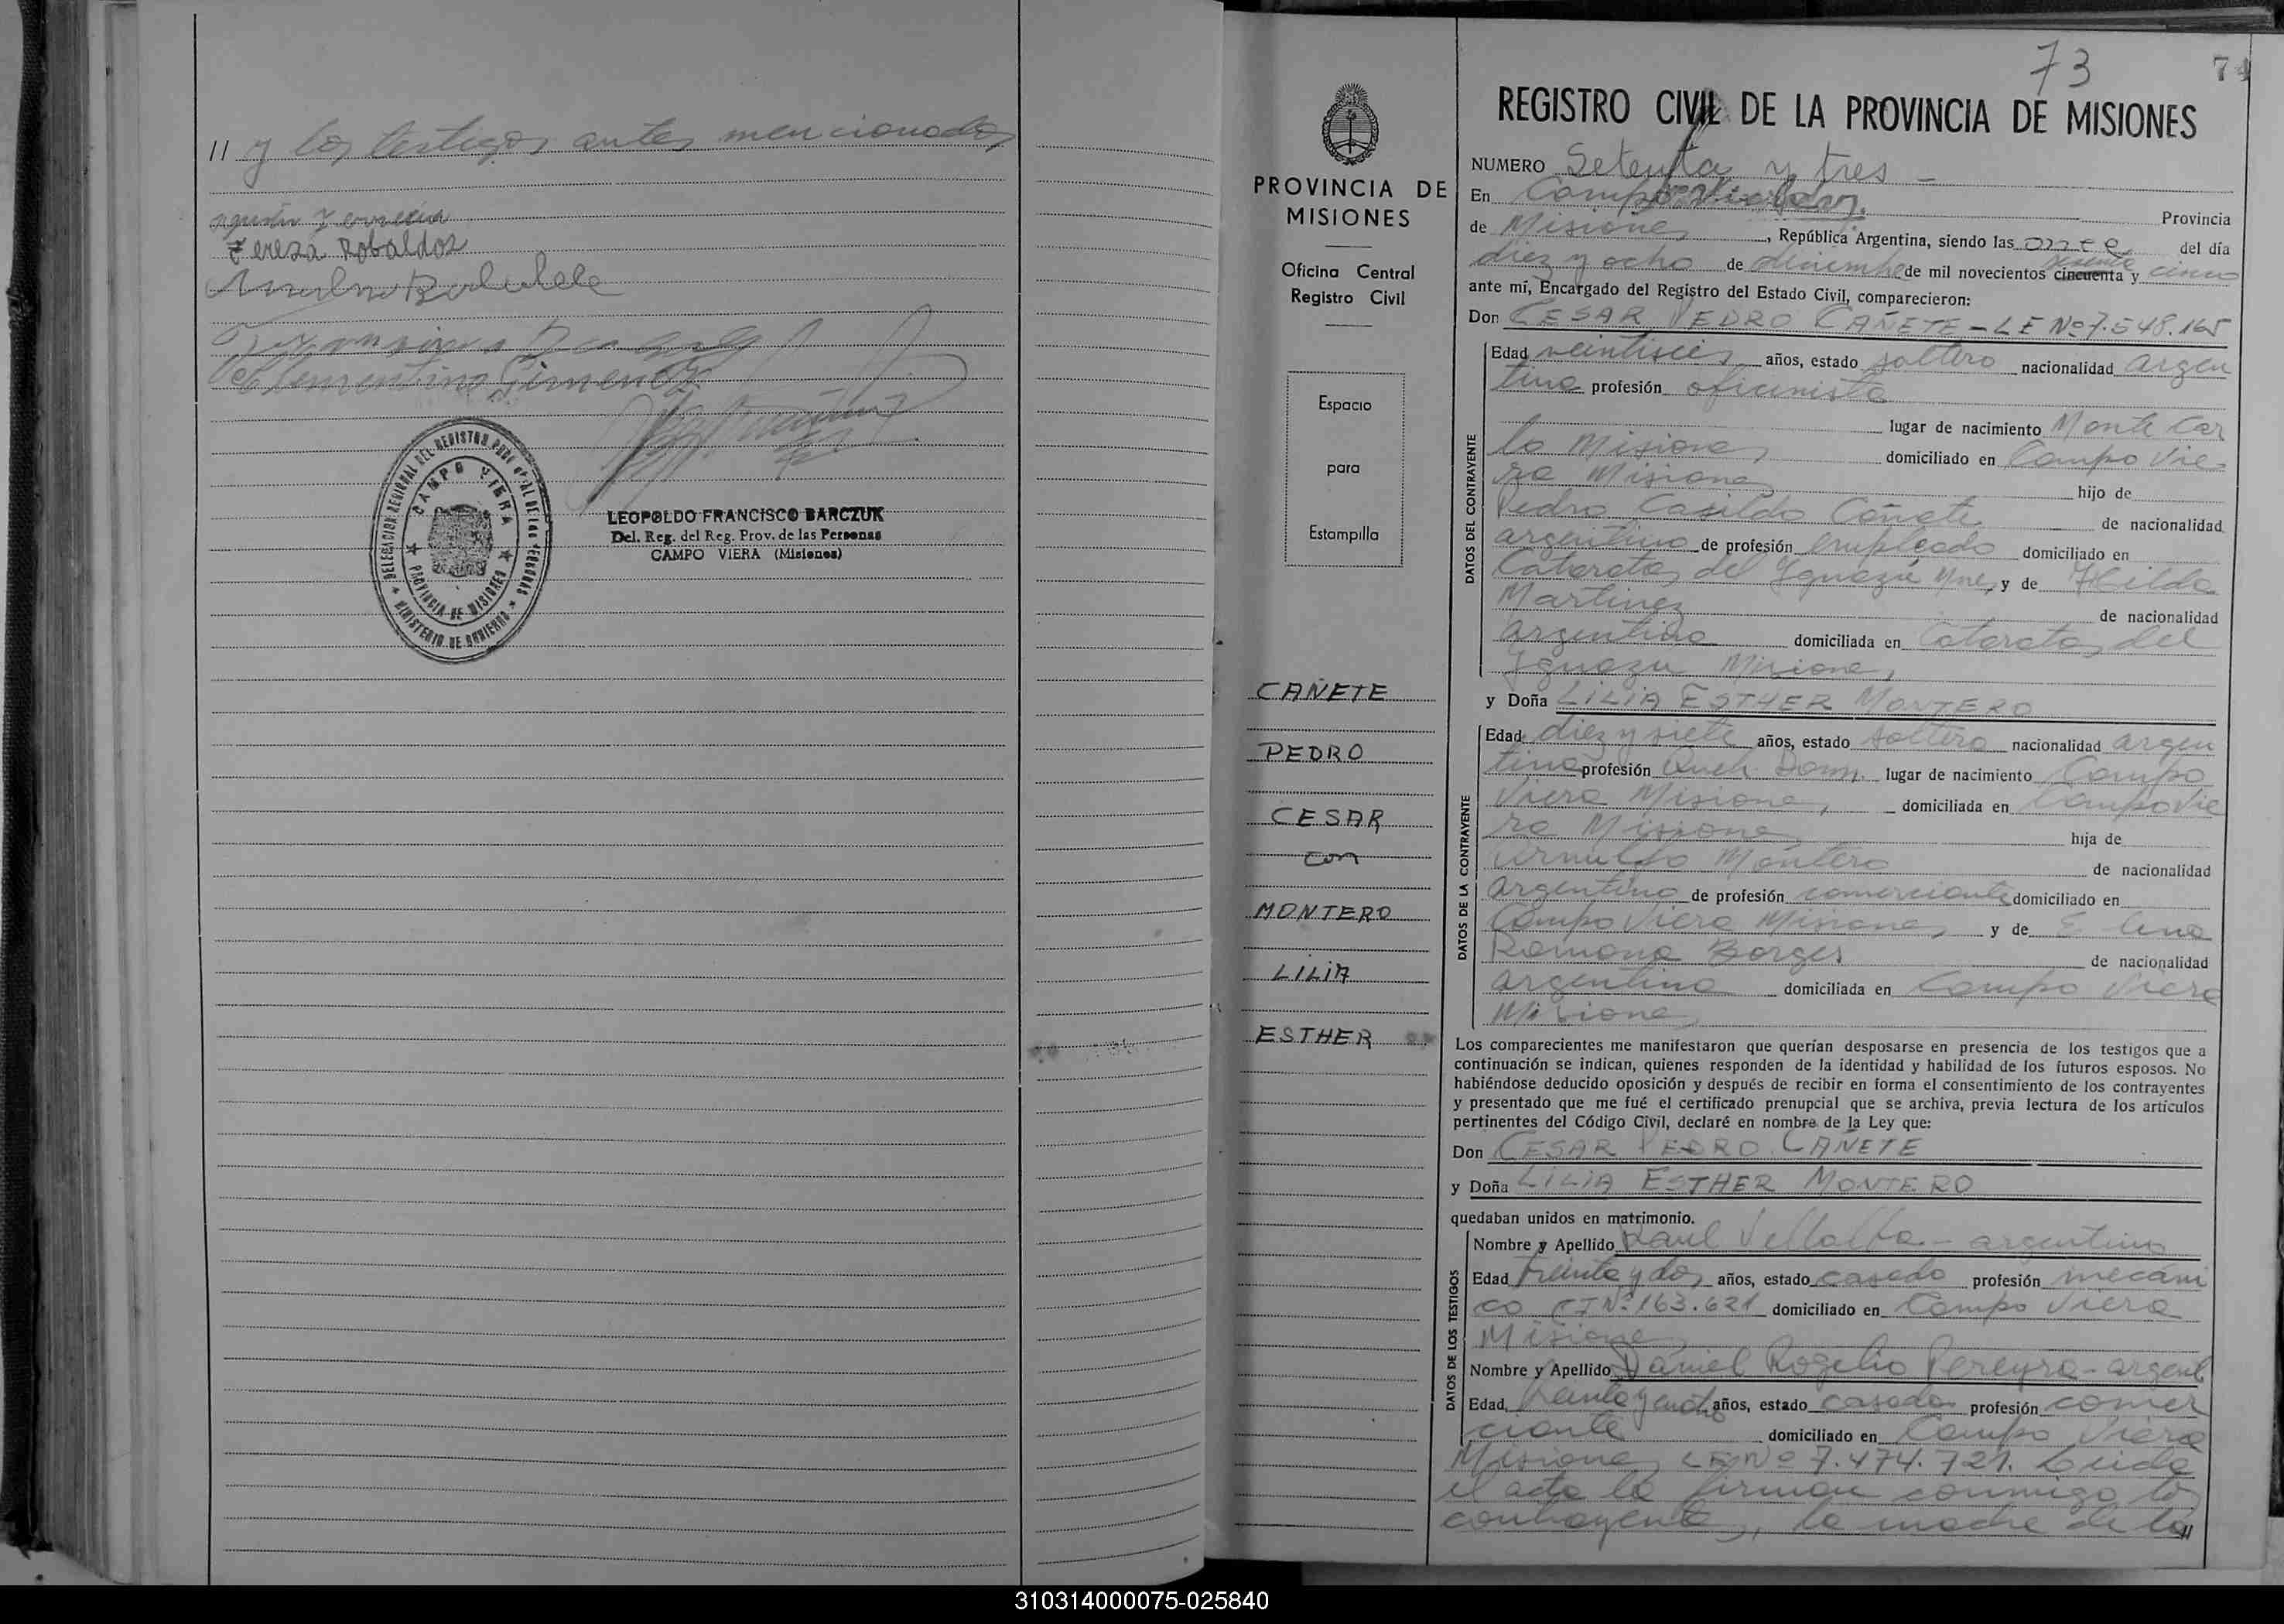 // y los testigos antes mencionados
Tereza Robaldoz
Clementino Gimenez
DELEGACION REGIONAL DEL REGISTRO PROVINCIAL DE LAS PERSONAS
CAMPO VIERA
PROVINCIA DE MISIONES
MINISTERIO DE GOBIERNO
LEOPOLDO FRANCISCO BARCZUK
Del. Reg. del Reg. Prov. de las Personas
CAMPO VIERA (Misiones)
PROVINCIA DE
MISIONES
Oficina Central
Registro Civil
Espacio
para
Estampilla
CAÑETE
PEDRO
CESAR
con
MONTERO
LILIA
ESTHER
73
74
REGISTRO CIVIL DE LA PROVINCIA DE MISIONES
NUMERO Setenta y tres -
En Campo Viera Provincia
de Misiones, República Argentina, siendo las once del día
diez y ocho de diciembre de mil novecientos cincuenta sesenta y cinco
ante mí, Encargado del Registro del Estado Civil, comparecieron:
Don CESAR PEDRO CAÑETE - LE Nº 7.548.165
Edad veintiseis años, estado soltero nacionalidad argen
tina profesión oficinista
lugar de nacimiento Monte Car
lo Misiones domiciliado en Campo Vie-
ra Misiones hijo de
Pedro Casildo Cañete de nacionalidad
argentino de profesión empleado domiciliado en
Cataratas del Yguazú Mnes, y de Hilda
Martinez de nacionalidad
argentina domiciliada en Cataratas del
Yguazu Misiones
y Doña LILIA ESTHER MONTERO
Edad diez y siete años, estado soltera nacionalidad argen
tina profesión Queh. Dom. lugar de nacimiento Campo
Viera Misiones, domiciliada en Campo Vie
ra Misiones hija de
Arnulfo Montero de nacionalidad
argentino de profesión comerciante domiciliado en
Campo Viera Misiones, y de Elena
Ramona Borges de nacionalidad
argentina domiciliada en Campo Viera
Misiones
Los comparecientes me manifestaron que querían desposarse en presencia de los testigos que a
continuación se indican, quienes responden de la identidad y habilidad de los futuros esposos. No
habiéndose deducido oposición y después de recibir en forma el consentimiento de los contrayentes
y presentado que me fué el certificado prenupcial que se archiva, previa lectura de los artículos
pertinentes del Código Civil, declaré en nombre de la Ley que:
Don CESAR PEDRO CAÑETE
y Doña LILIA ESTHER MONTERO
quedaban unidos en matrimonio.
Nombre y Apellido Raul Vellalba - argentino
Edad treinta y dos años, estado casado profesión mecáni
co CI Nº 163.621 domiciliado en Campo Viera
Misiones
Nombre y Apellido Daniel Rogelio Pereyra - argent
Edad treinta y cuatro años, estado casado profesión comer
ciante domiciliado en Campo Viera
Misiones LE Nº 7.474.721. Leida
el acta la firman conmigo los
contrayentes, la madre de la //
DATOS DEL CONTRAYENTE
DATOS DE LA CONTRAYENTE
DATOS DE LOS TESTIGOS
310314000075-025840